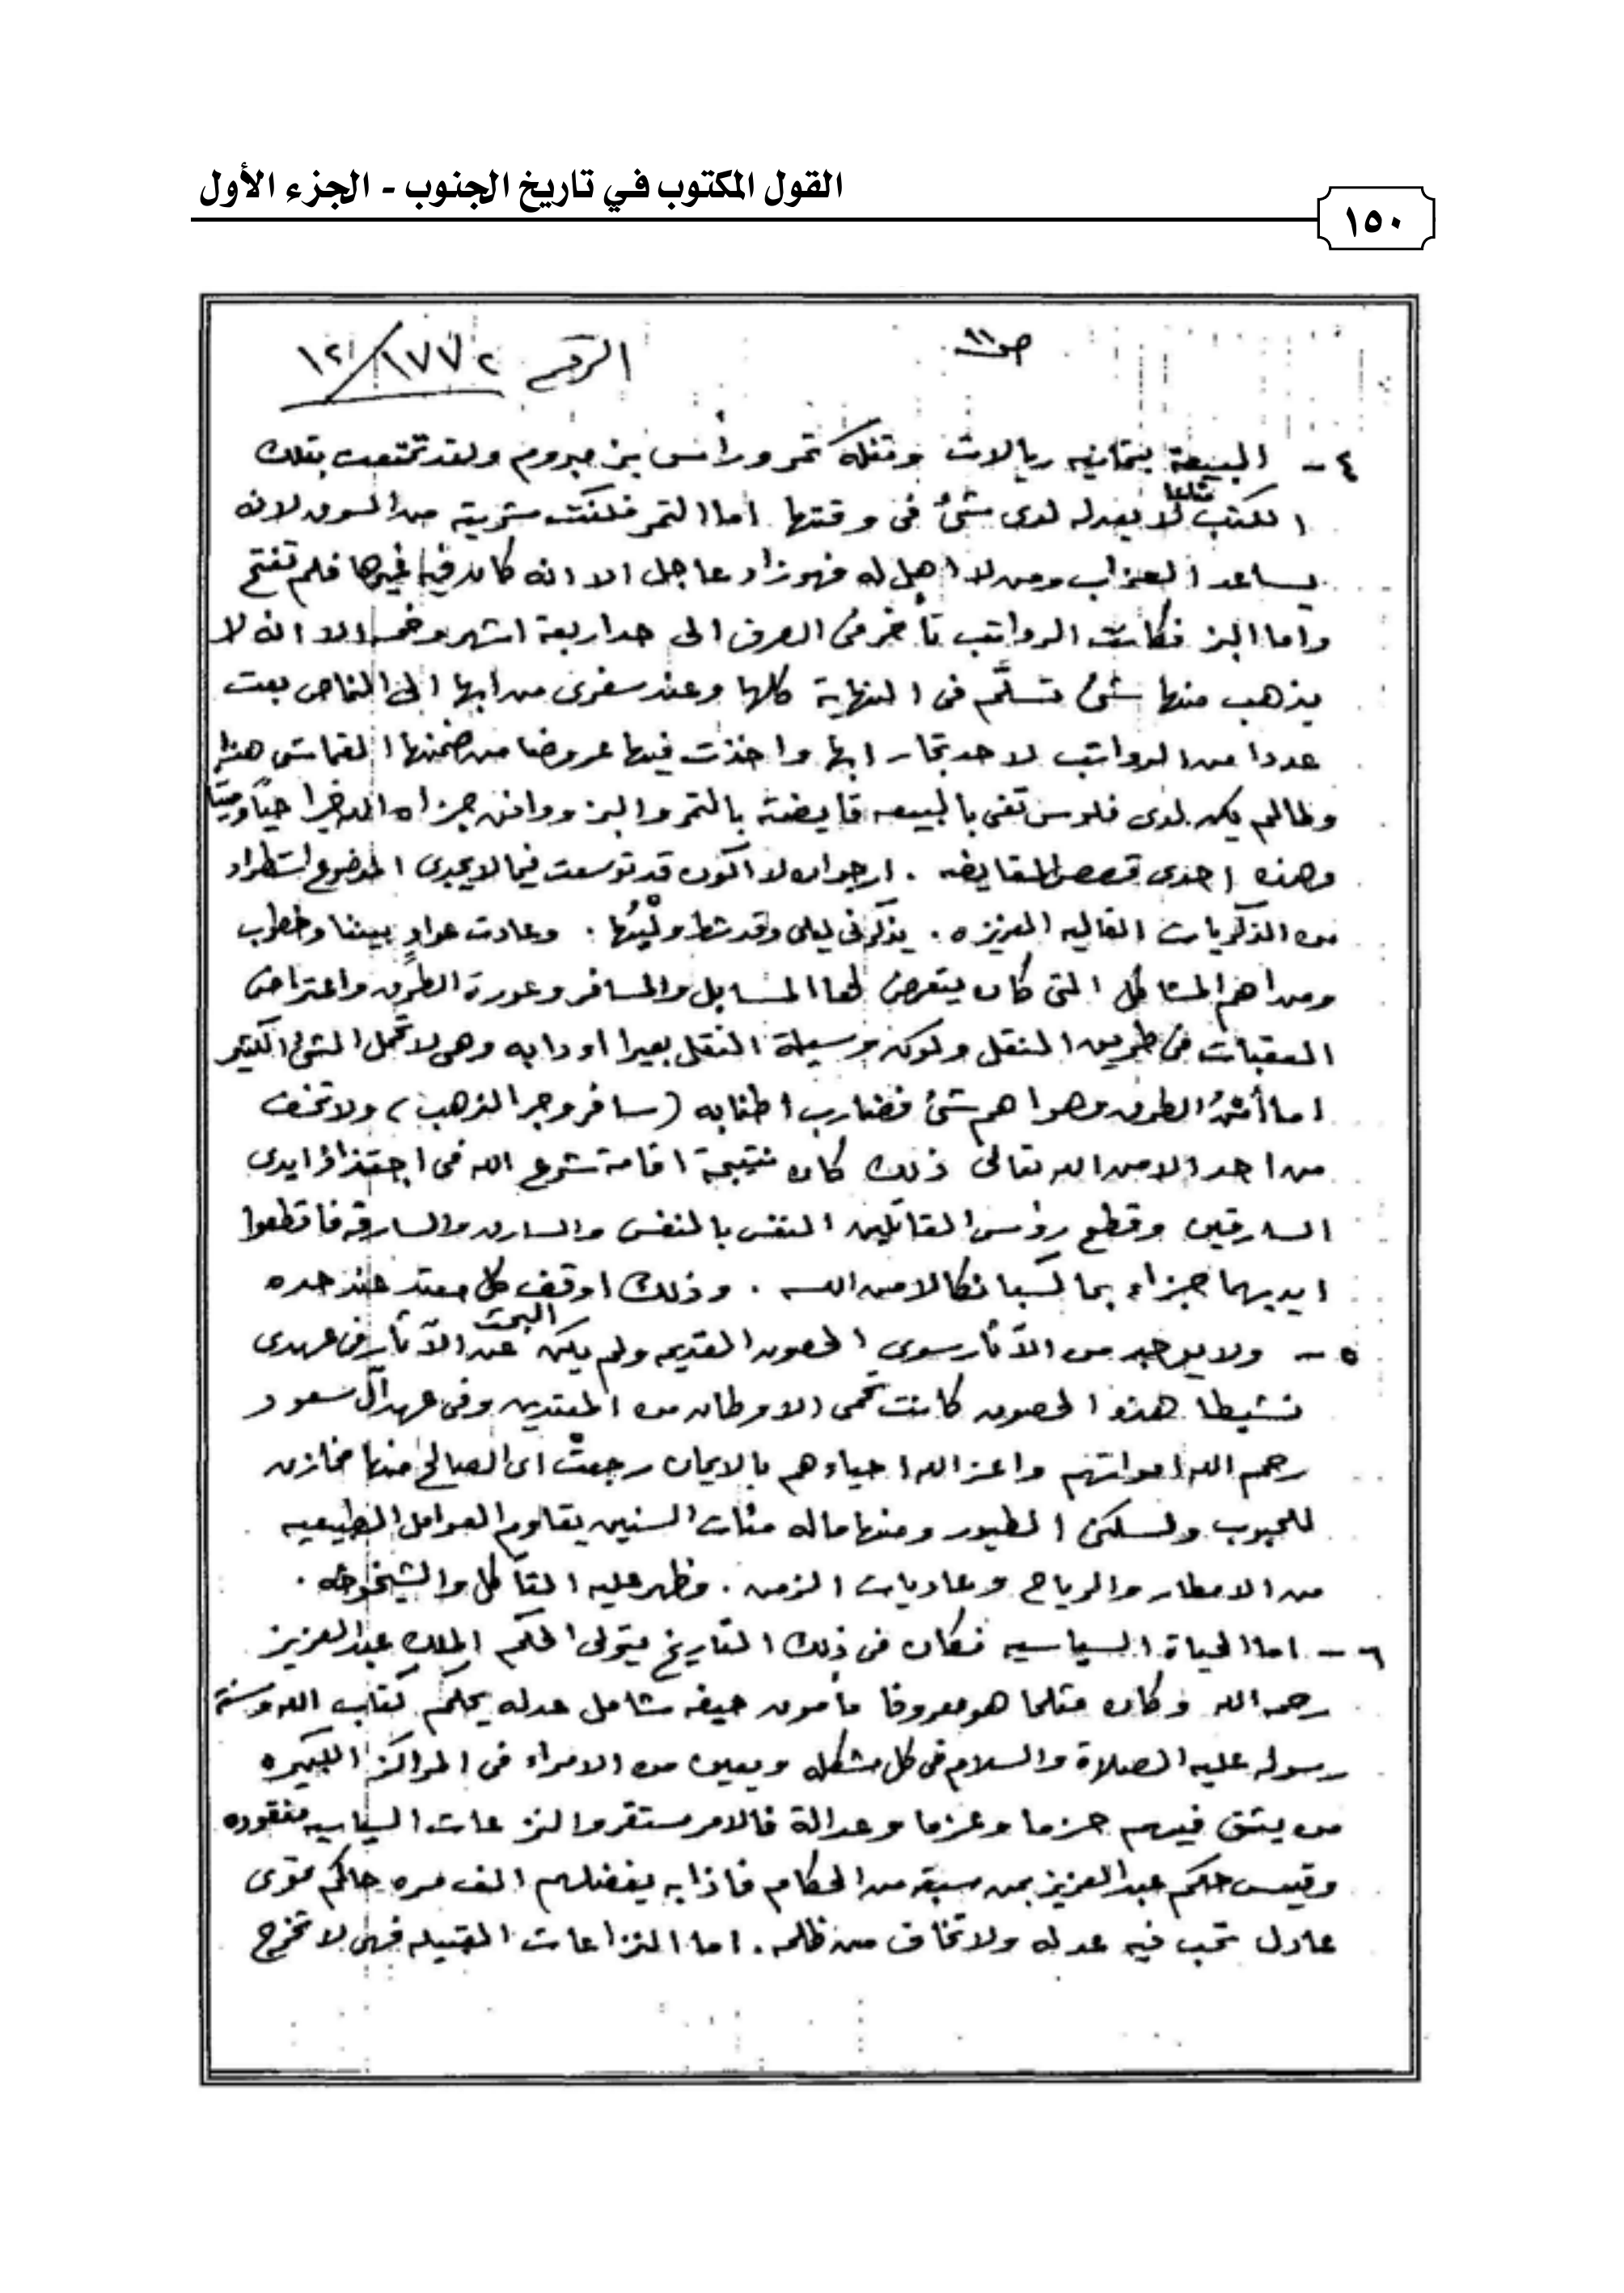 القول المكتوب في تاريخ الجنوب - الجزء الأول
١٥٠
ص١١
الرقم ١٧٧٢/١٢
٤ - البيعة بثمانيه ريالات وتنكة تمر ورأس بز مبروم ولقد تمتعت بتلك
الكتب متاعا لا يعدله لدى شئ فى وقتها اما التمر فكنت شريته من السوق لانه
يساعد العزاب ومن لا اهل له فهو زاد عاجل الا انه كان فيه غيرها فلم تفتح
واما البز فكانت الرواتب تأخر فى الصرف الى حد اربعة اشهر وخمسه الا انه لا
يذهب منها شئ تسلَّم فى النهاية كلها وعند سفرى من ابها الى النماص بعت
عددا من الرواتب لاحد تجار ابها واخذت فيها عروضا من ضمنها القماش هذا
وطالم يكن لدى فلوس تفى بالبيعه قايضته بالتمر والبز ووافق جزاه الله خيرا حياً وميتا
وهذه احدى قصص المقايضه . ارجو ان لا اكون قد توسعت فيما لا يجدى الموضوع استطراد
من الذكريات الغاليه العزيزه . يذكرنى ليلى وقد شط ولْيُها . وعادت عوادٍ بيننا وخطوب
ومن اهم المشاكل التى كان يتعرض لها المسابل والمسافر وعورة الطرق واعتراض
العقبات فى طريق المنقل ولكون وسيلة النقل بعيرا او دابه وهى لا تحمل الشئ الكثير
اما أمْنُ الطرق وهو اهم شئ فضارب اطنابه (سافر وجر الذهب) ولا تخف
من احد الا من الله تعالى ذلك كان نتيجة اقامة شرع الله فى اجتذاذ ايدى
السارقين وقطع رؤس القاتلين النفس بالنفس والسارق والسارقه فاقطعوا
ايديهما جزاء بما كسبا نكالا من الله . وذلك اوقف كل معتد عند حده
٥ - ولا يوجد من الآثار سوى الحصون القديمه ولم يكن البحث عن الآثار فى عهدى
نشيطا هذه الحصون كانت تحمى الاوطان من المعتدين وفى عهد آل سعود
رحم الله امواتهم واعز الله احياءهم بالايمان رجعتْ اى الصالح منها مخازن
للحبوب ولسكن الطيور ومنها ماله مئات السنين يقاوم العوامل الطبيعيه
من الامطار والرياح وعاديات الزمن . وظهر عليه التآكل والشيخوخه .
٦ - اما الحياة السياسيه فكان فى ذلك التاريخ يتولى الحكم الملك عبدالعزيز
رحمه الله وكان مثلما هو معروفا مأمون حيفه شامل عدله يحكم كتاب الله وسنة
رسوله عليه الصلاة والسلام فى كل مشكله ويعين من الامراء فى المراكز الكبيره
من يثق فيهم حزما وعزما وعدالة فالامر مستقر والنزعات السياسيه مفقوده
وقيس حكم عبدالعزيز بمن سبقه من الحكام فاذا به يفضلهم الف مره حاكم قوى
عادل تحب فيه عدله ولا تخاف من ظلمه . اما النزاعات القبليه فهى لا تخرج